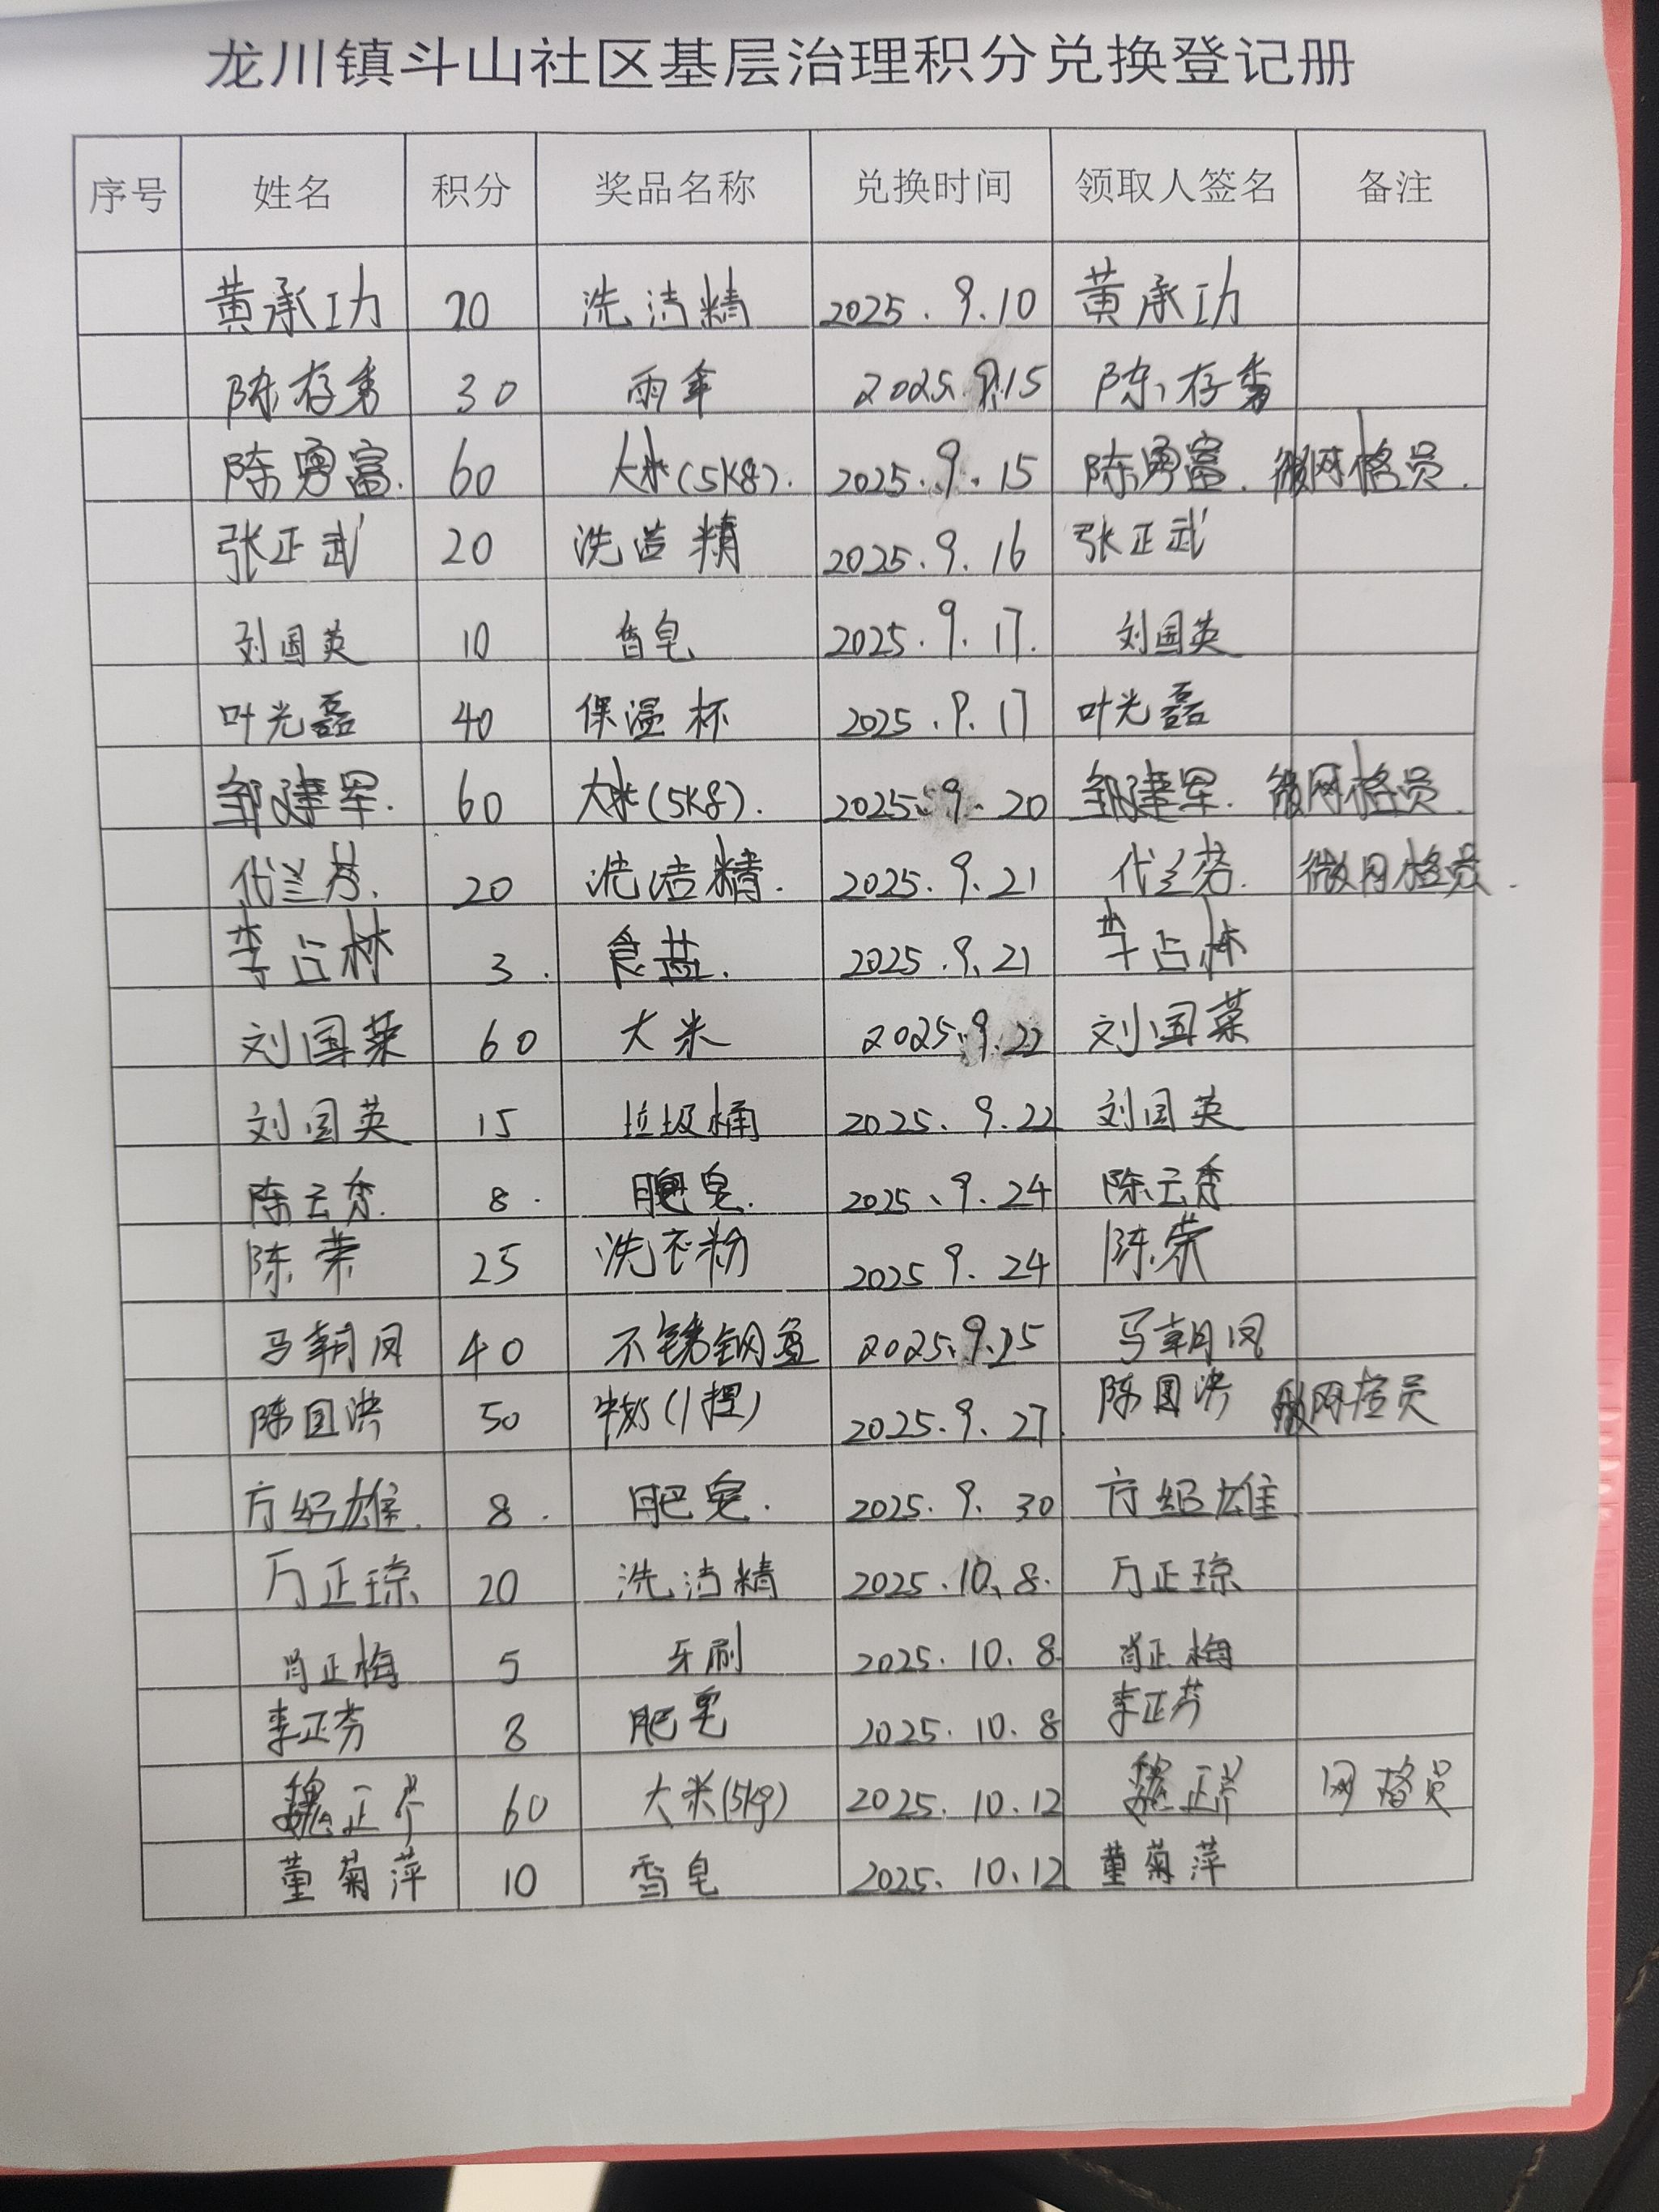 龙川镇斗山社区基层治理积分兑换登记册
序号 姓名 积分 奖品名称 兑换时间 领取人签名 备注
黄承功 20 洗洁精 2025.9.10 黄承功
陈存秀 30 雨伞 2025.9.15 陈存秀
陈勇富. 60 大米(5Kg). 2025.9.15 陈勇富. 微网格员.
张正武 20 洗洁精 2025.9.16 张正武
刘国英 10 香皂 2025.9.17. 刘国英
叶光磊 40 保温杯 2025.9.17 叶光磊
邹建军. 60 大米(5Kg). 2025.9.20 邹建军. 微网格员.
代兰芬. 20 洗洁精. 2025.9.21 代兰芬. 微网格员.
李占林 3. 食盐. 2025.9.21 李占林
刘国菜 60 大米 2025.9.22 刘国菜
刘国英 15 垃圾桶 2025.9.22 刘国英
陈云秀. 8. 肥皂. 2025.9.24 陈云秀.
陈荣 25 洗衣粉 2025 9.24 陈荣
马朝凤 40 不锈钢盆 2025.9.25 马朝凤
陈国洪 50 牛奶(1提) 2025.9.27. 陈国洪 微网格员
方绍雄. 8. 肥皂. 2025.9.30 方绍雄
万正琼 20 洗洁精 2025.10.8. 万正琼
肖正梅 5 牙刷 2025.10.8. 肖正梅
李正芬 8 肥皂 2025.10.8 李正芬
魏正芹 60 大米(5kg) 2025.10.12 魏正芹 网格员
董菊萍 10 香皂 2025.10.12 董菊萍